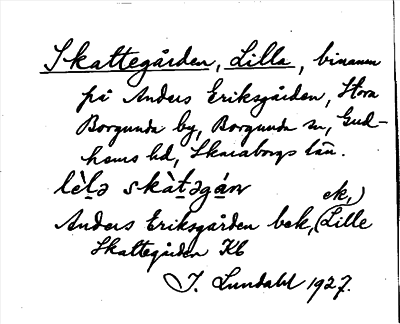 Skattegården, Lilla, binamn
på Anders Eriksgården, Stora
Borgunda by, Borgunda sn, Gud-
hems hd, Skaraborgs län.
lèl̠ə skàt̠əgán
Anders Eriksgården bek, (Lille
ek,)
Skattegården Kb
J. Lundahl 1927.